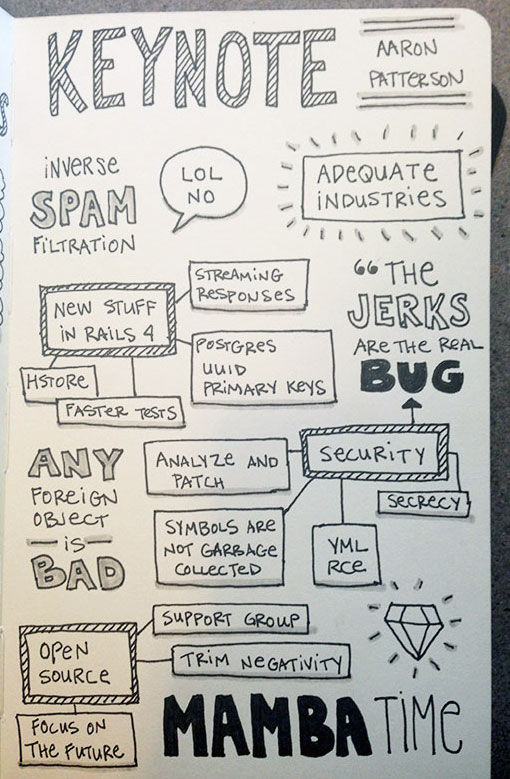 KEYNOTE
AARON
PATTERSON
iNVERSE
SPAM
FiLTRATiON
LOL
NO
ADEQUATE
iNDUSTRiES
STREAMiNG
RESPONSES
NEW STUFF
iN RAiLS 4
POSTGRES
UUiD
PRiMARY KEYS
HSTORE
FASTER TESTS
“THE
JERKS
ARE THE REAL
BUG
ANY
FOREiGN
OBJECT
—is—
BAD
ANALYZE AND
PATCH
SECURiTY
SECRECY
SYMBOLS ARE
NOT GARBAGE
COLLECTED
YML
RCE
SUPPORT GROUP
OPEN
SOURCE
TRiM NEGATiViTY
FOCUS ON
THE FUTURE
MAMBA TiME